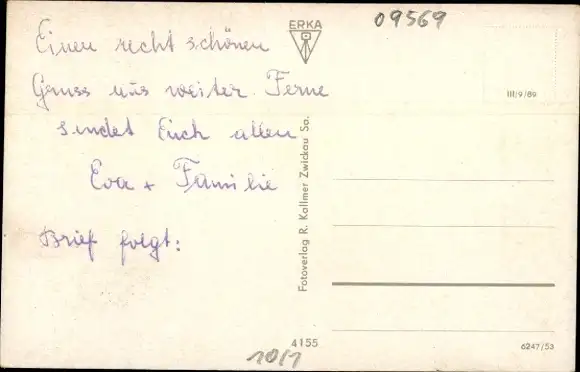 09569
ERKA
Einen recht schönen
Gruss aus weiter Ferne
sendet Euch allen
Eva + Familie
Brief folgt:
III/9/89
Fotoverlag R. Kallmer Zwickau Sa.
4155
6247/53
10/1